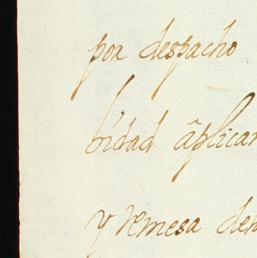 por despacho
bidad aplicar
y remesa de